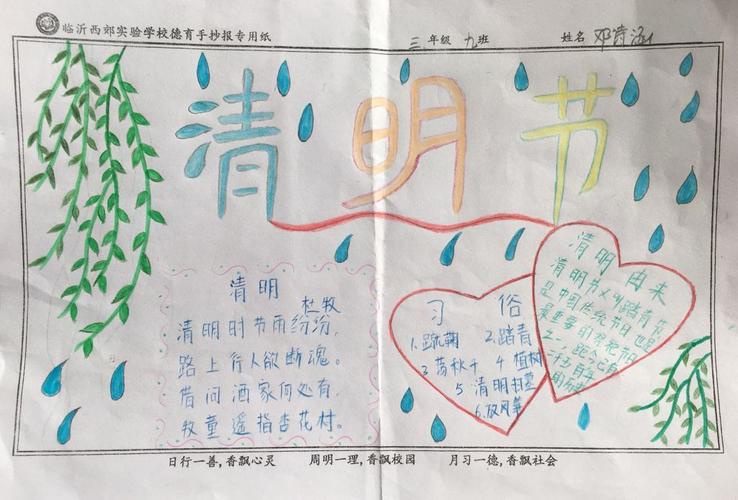 临沂西郊实验学校德育手抄报专用纸
三 年级 九 班
姓名 邓诗涵
清明节
清明
杜牧
清明时节雨纷纷,
路上行人欲断魂。
借问酒家何处有,
牧童遥指杏花村。
习俗
1.蹴鞠 2.踏青
3 荡秋千 4 植树
5 清明扫墓
6.放风筝
清明由来
清明节又叫踏青节
是中国传统节日也是
最重要的祭祀节日
之一,距今已有
二千五百年
的历史
日行一善,香飘心灵 周明一理,香飘校园 月习一德,香飘社会